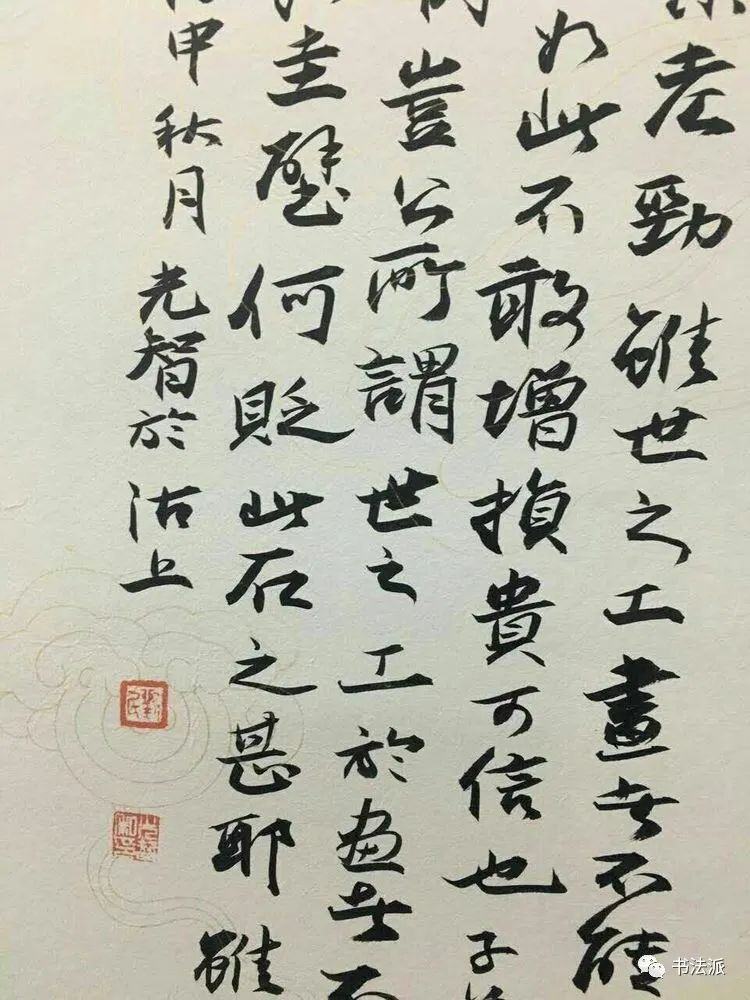 老勁雖世之工畫者不能
如此不敢增損貴可信也子
豈公所謂世之工於畫者不
圭璧何貶此石之甚耶雖
申秋月光智於沽上
书法派